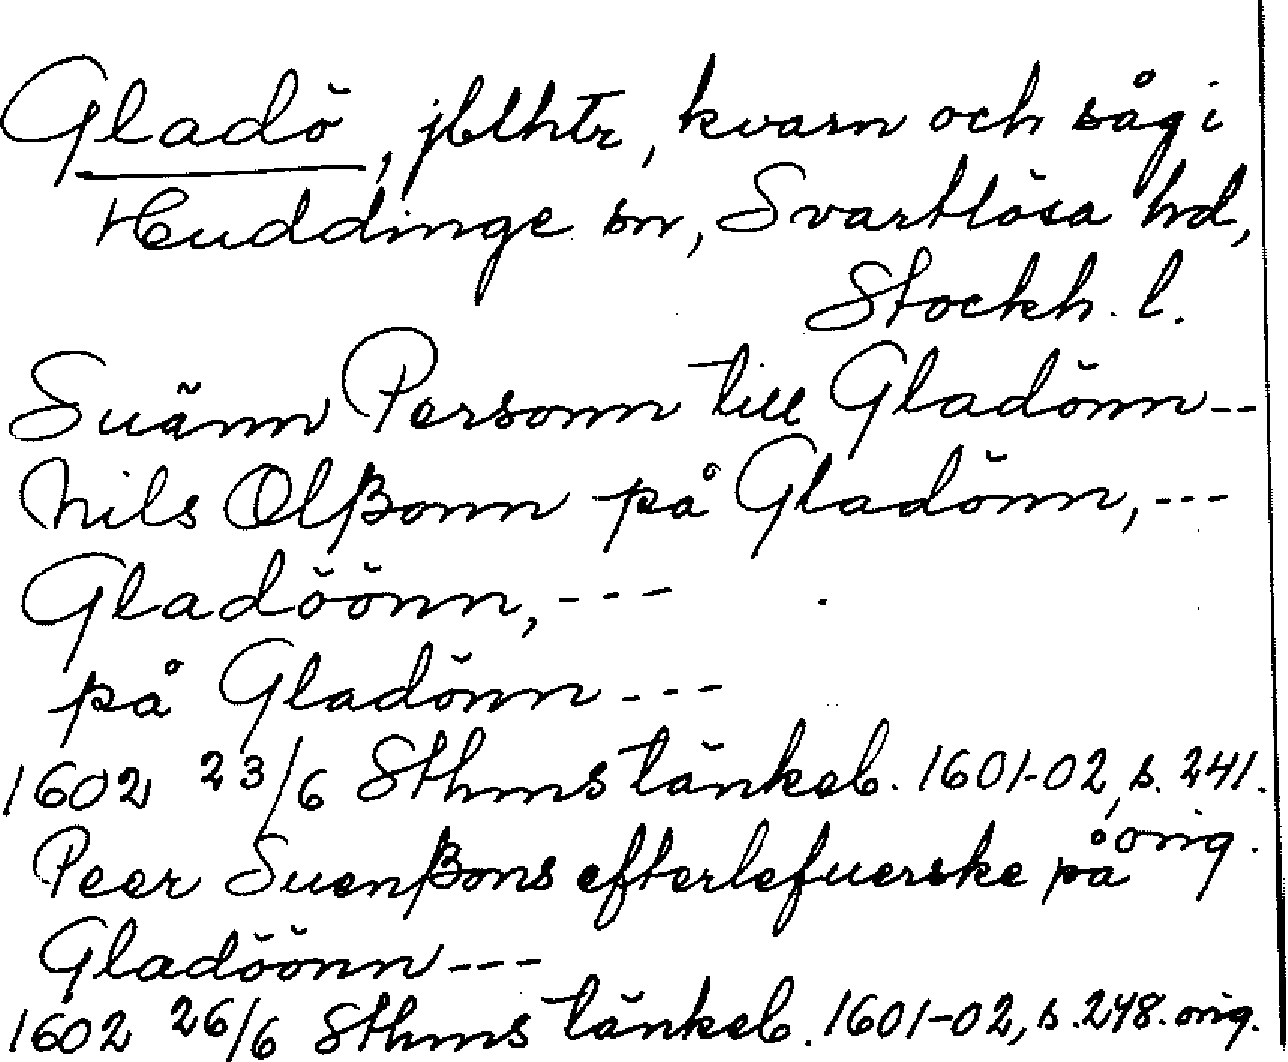 Gladö, jblhtr, kvarn och såg i
Huddinge sn, Svartlösa hd,
Stockh. l.
Suänn Personn till Gladönn --
Nils Olßonn på Gladönn, ---
Gladöönn, ---
på Gladönn ---
1602 23/6 Sthms tänkeb. 1601-02, s. 241.
orig.
Peer Suenßons efterlefuerske på
Gladöönn ---
1602 26/6 Sthms tänkeb. 1601-02, s. 248. orig.